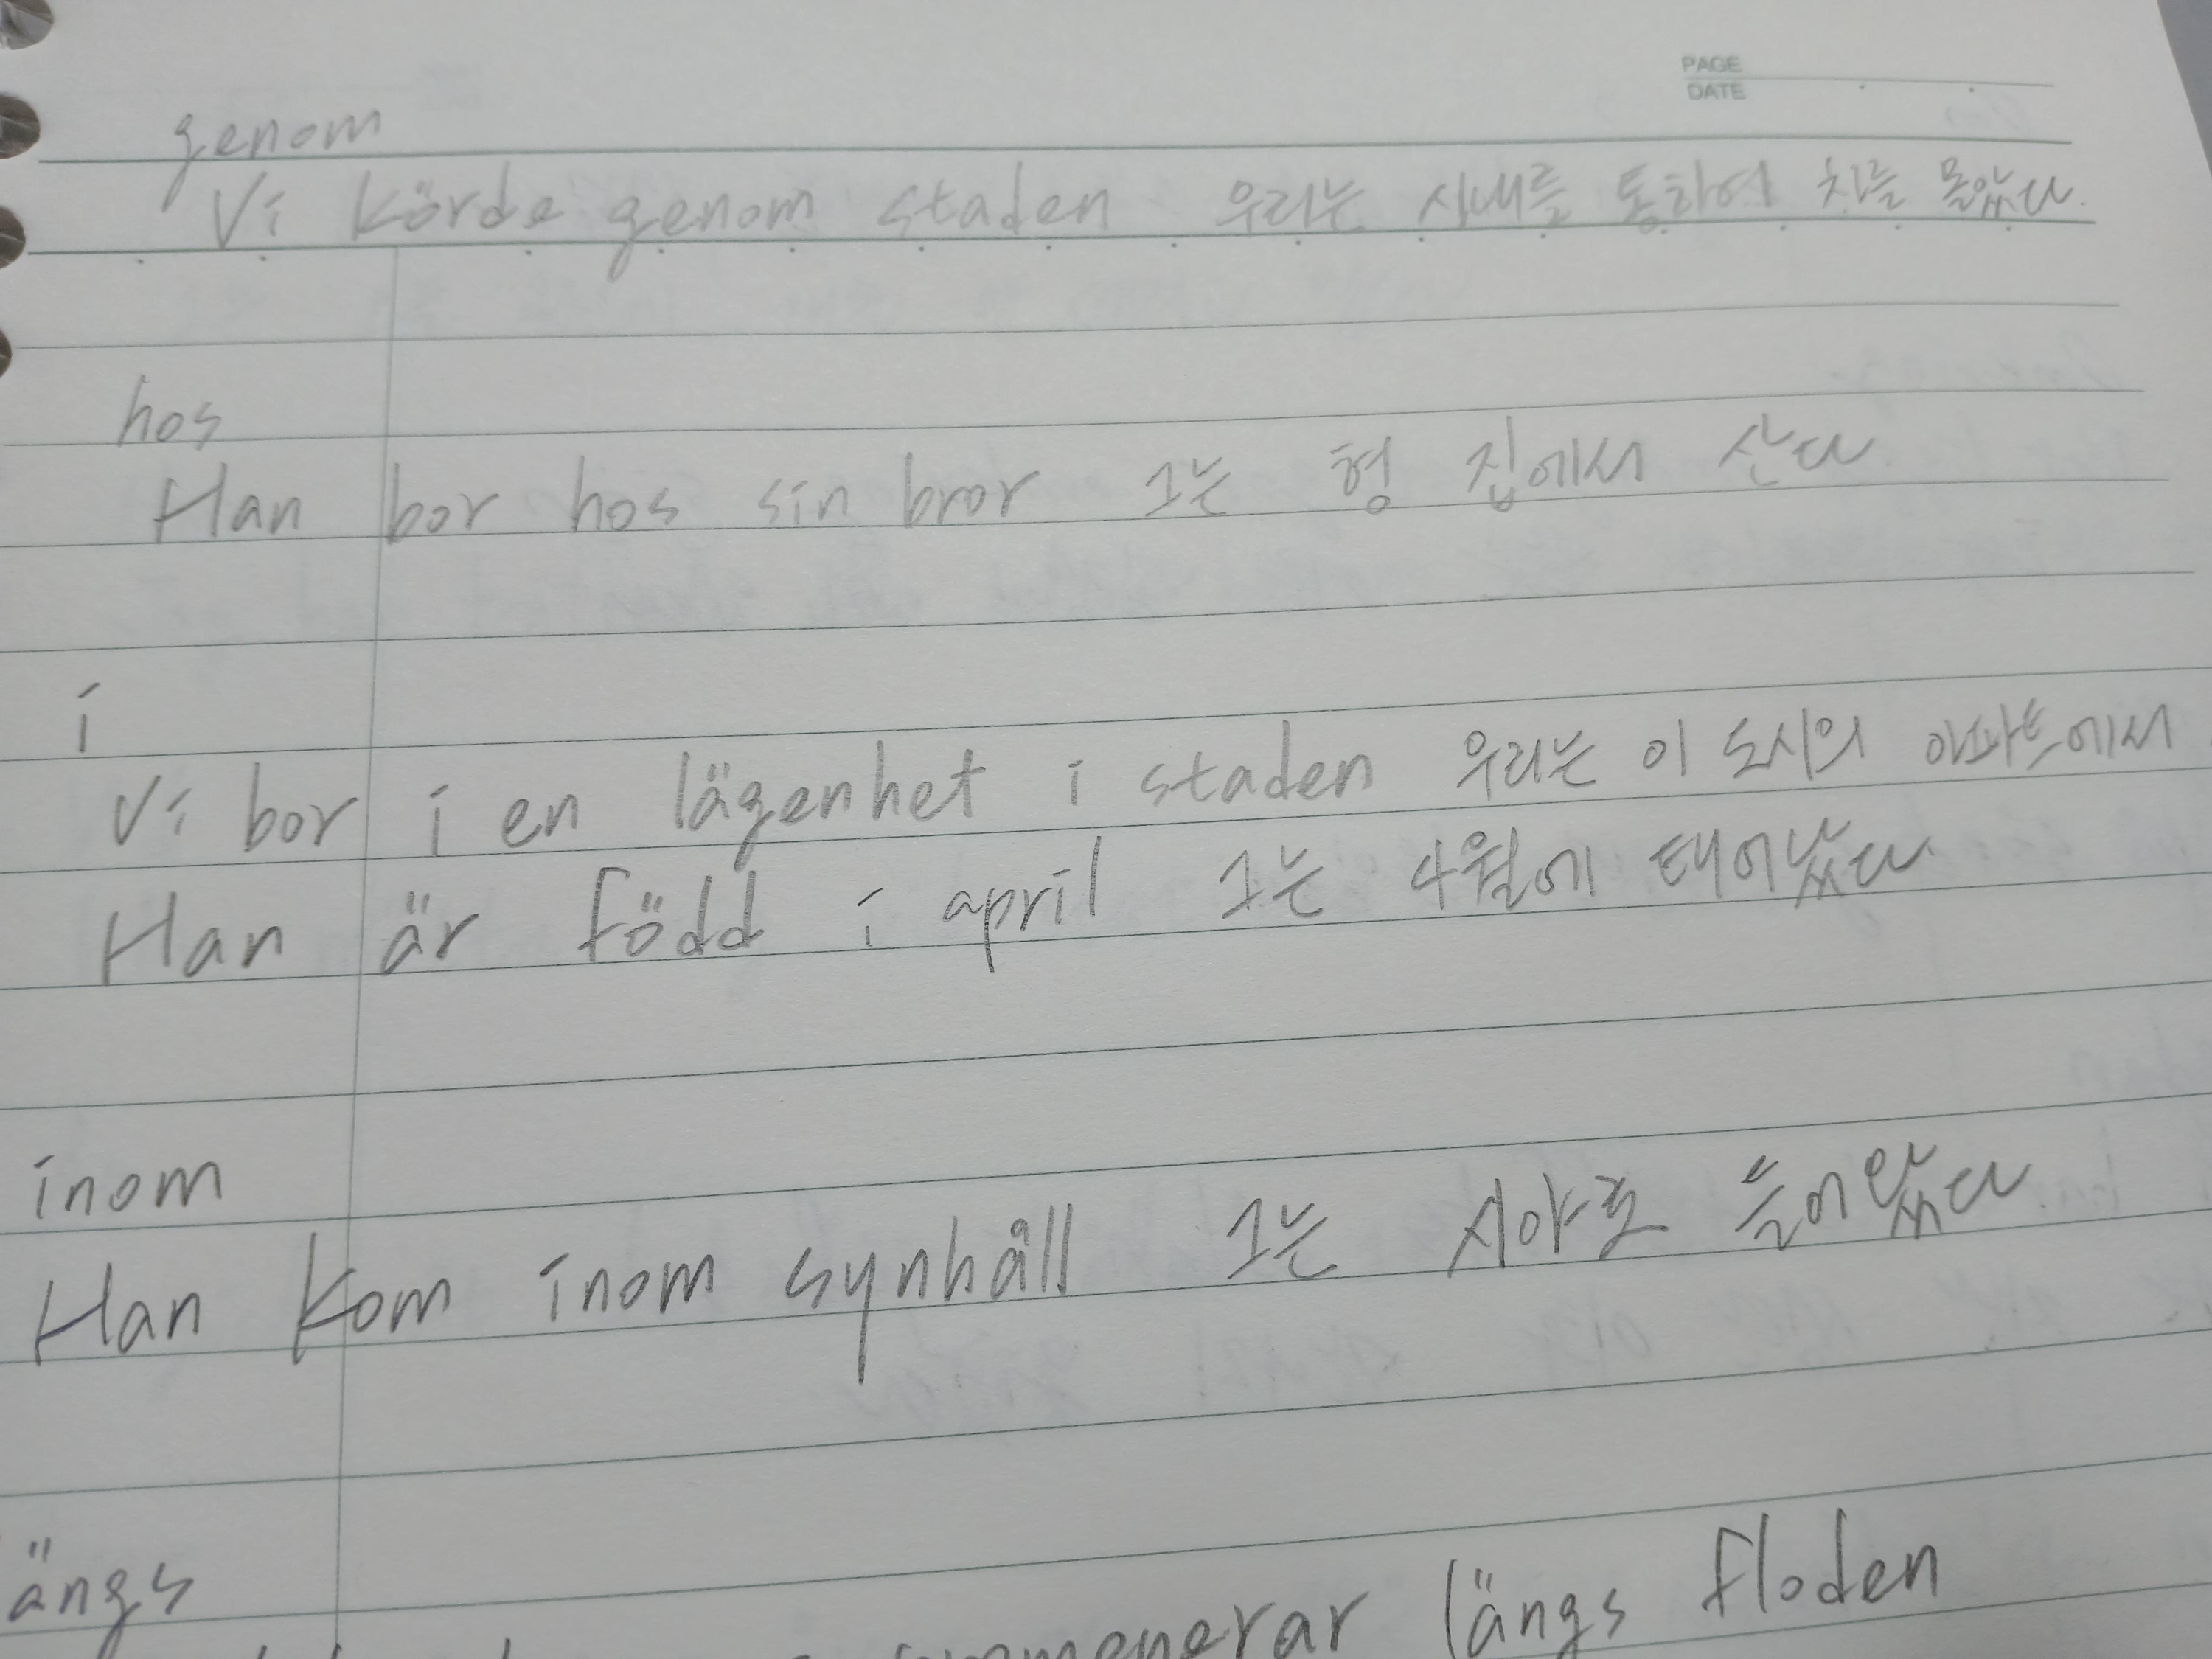 PAGE
DATE
genom
Vi körde genom staden 우리는 시내를 통하여 차를 몰았다.
hos
Han bor hos sin bror 그는 형 집에서 산다
i
Vi bor i en lägenhet i staden 우리는 이 도시의 아파트에서
Han är född i april 그는 4월에 태어났다
inom
Han kom inom synhåll 그는 시야로 들어왔다
ängs
längs floden